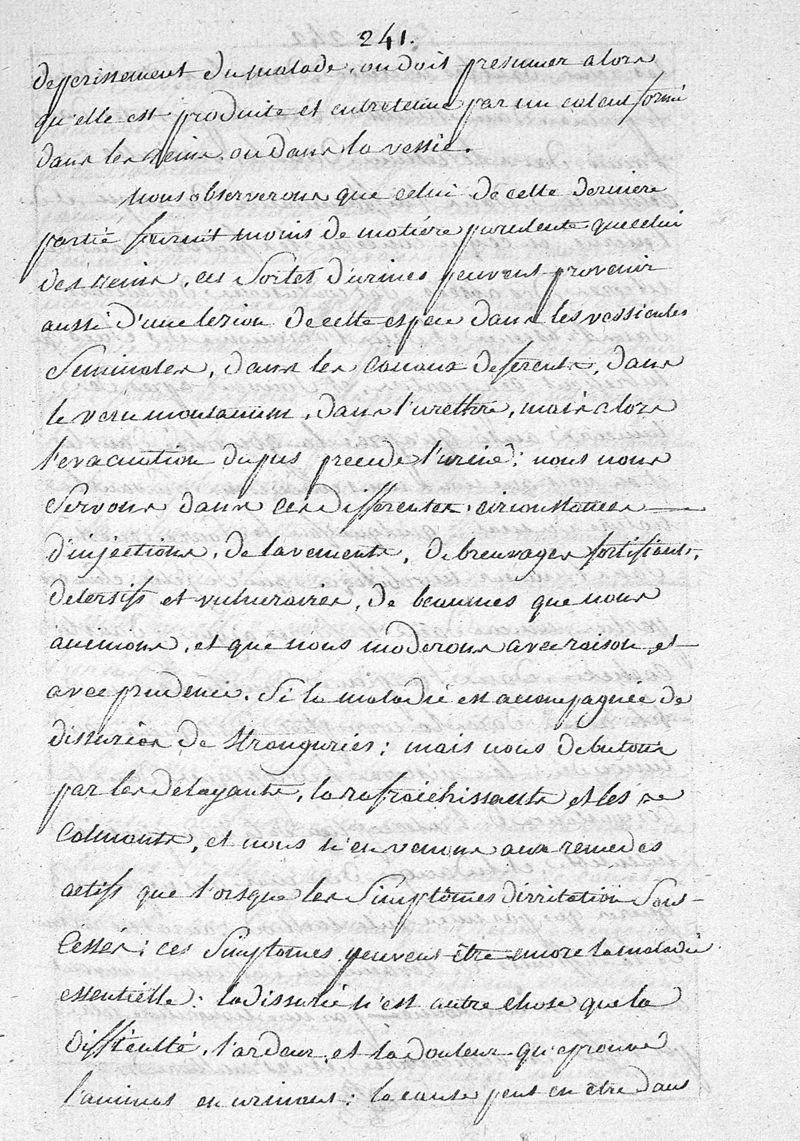 241.
deperissement du malade, on doit presumer alors
qu'elle est produite et entretenue par un calcul formé
dans les reins, ou dans la vessie.
nous observerons que celui de cette derniere
partie fournit moins de matiére purulente que celui
des reins, ces Sortes d'urines peuvent provenir
aussi d'une lezion de cette espece dans les vessicules
Seminales, dans les Canaux deferents, dans
le veru montanum, dans l'urethre, mais alors
l'evacuation du pus precede l'urine; nous nous
Servons dans ces differentes circonstances
d'injections, de lavements, de breuvages fortifiants,
detersifs et vulneraires, de beaumes que nous
animons, et que nous moderons avec raison et
avec prudence. Si la maladie est accompagnée de
dissuries de Stranguries; mais nous debutons
par les delayants, la rafraichissants et les
Calmants, et nous n'en venons aux remedes
actifs que l'orsque les Simptomes d'irritation Sont
Cesses; ces Simptomes peuvent être encore la maladie
essentielle: la dissurie n'est autre chose que la
difficulté, l'ardeur, et la douleur qu'eprouve
l'animal en urinant; la cause peut en être dans